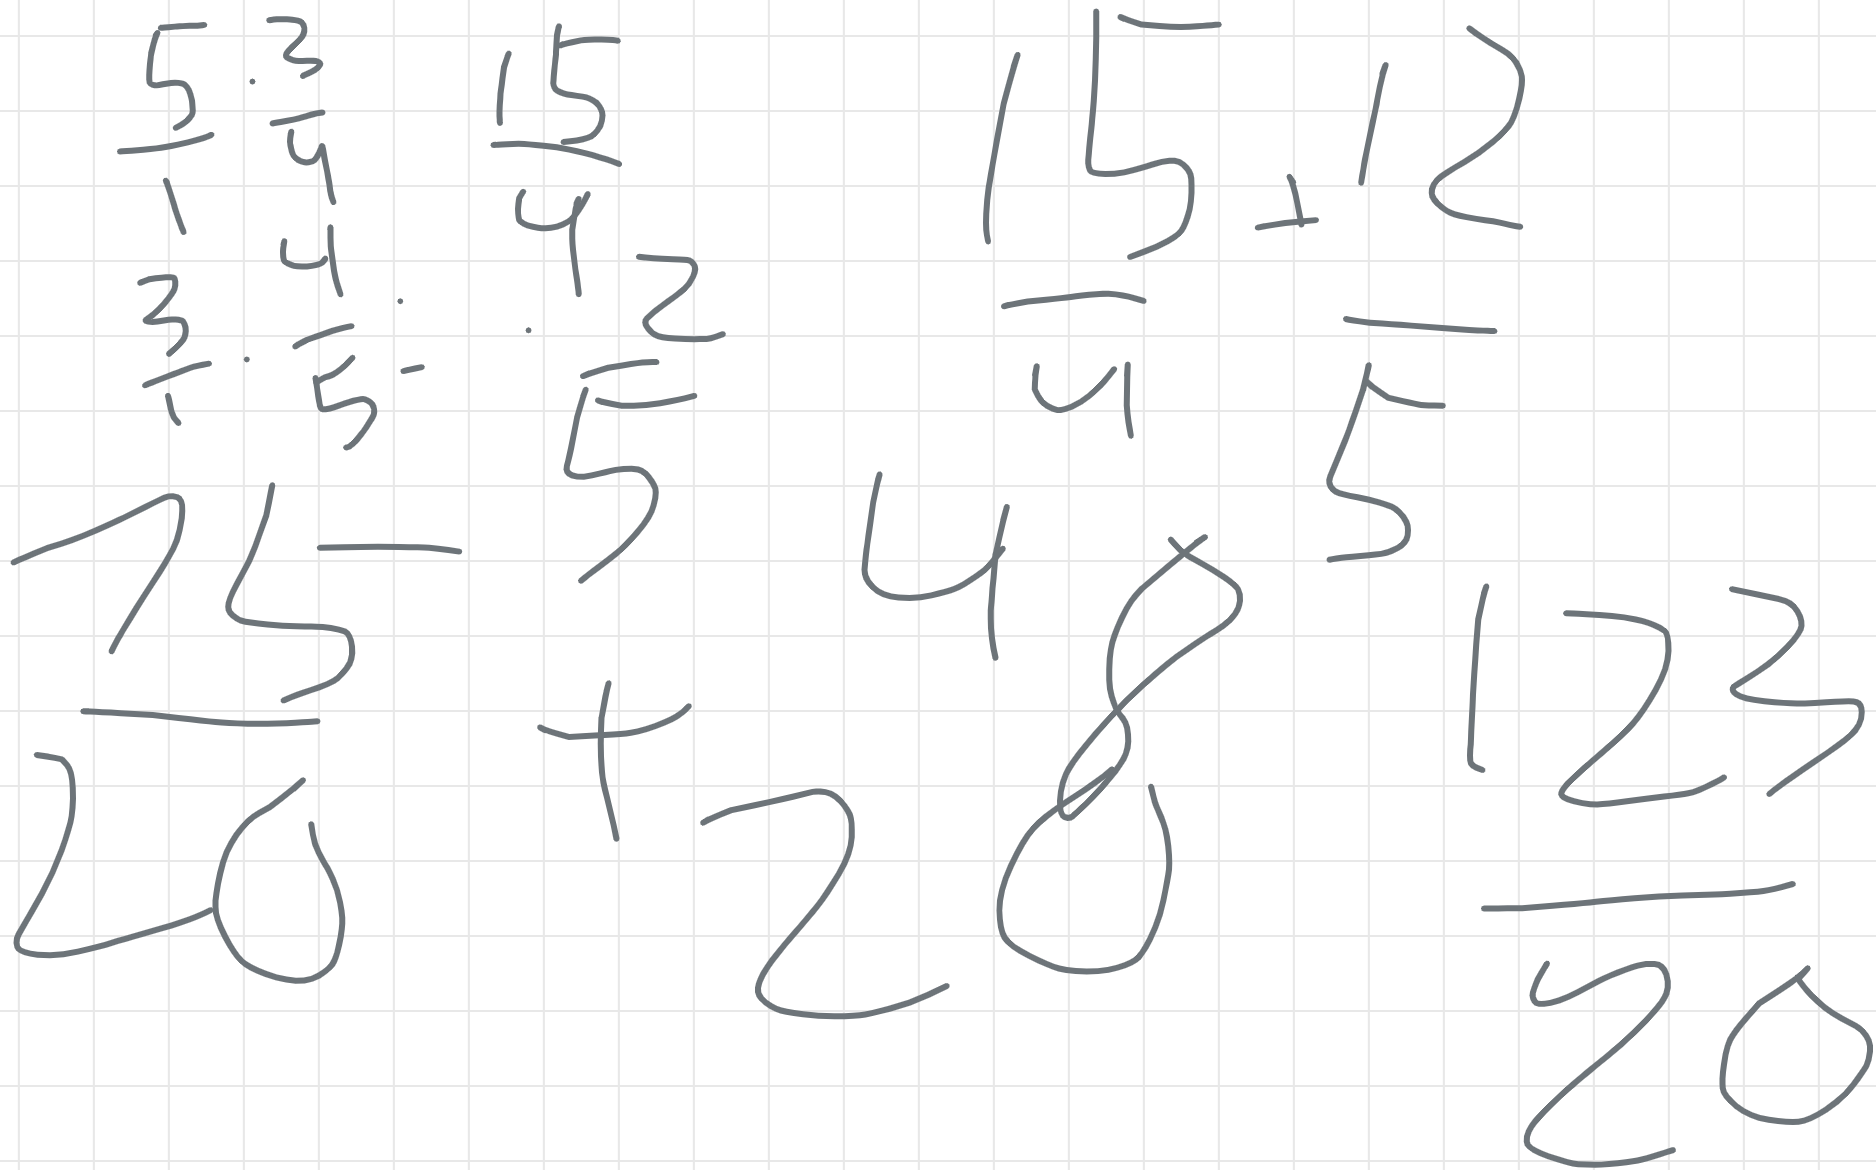 5/1 · 3/4 15/4
3/1 · 4/5 = 12/5
15/4 + 12/5
75/20 + 48/20
123/20